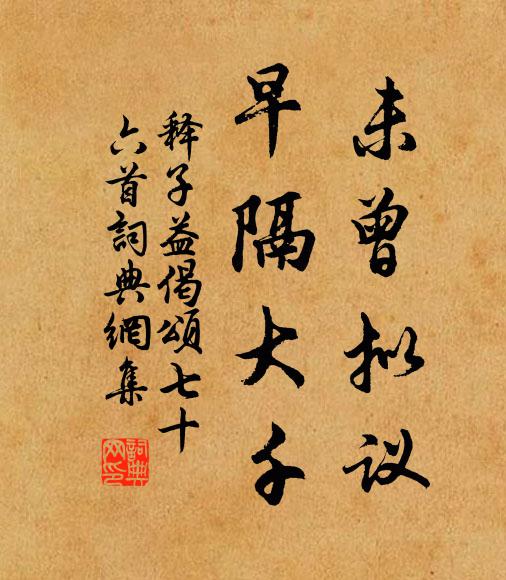 未曾拟议
早隔大千
释子益偈颂七十
六首詞典網集
詞典网印